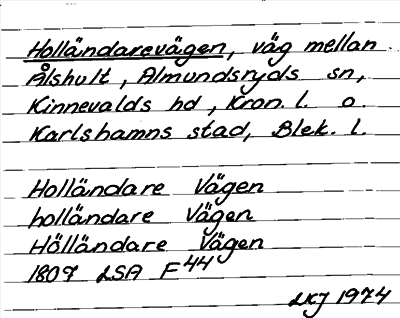 Holländarevägen, väg mellan
Ålshult, Almundsryds sn,
Kinnevalds hd, Kron. l. o.
Karlshamns stad, Blek. l.
Holländare Vägen
holländare Vägen
Hölländare Vägen
1807 LSA F44
LKJ 1974